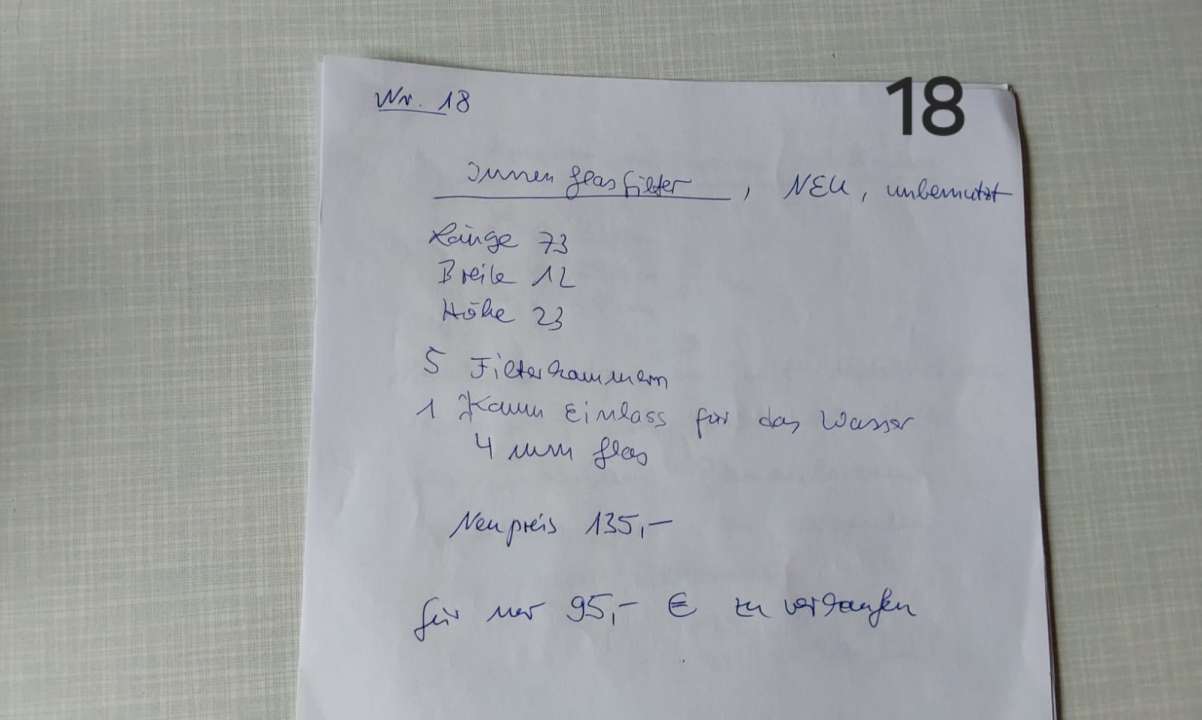 Nr. 18
18
Innenglasfilter, NEU, unbenutzt
Länge 73
Breite 12
Höhe 23
5 Filterkammern
1 Kamm Einlass für das Wasser
4 mm Glas
Neupreis 135,-
für nur 95,- € zu verkaufen